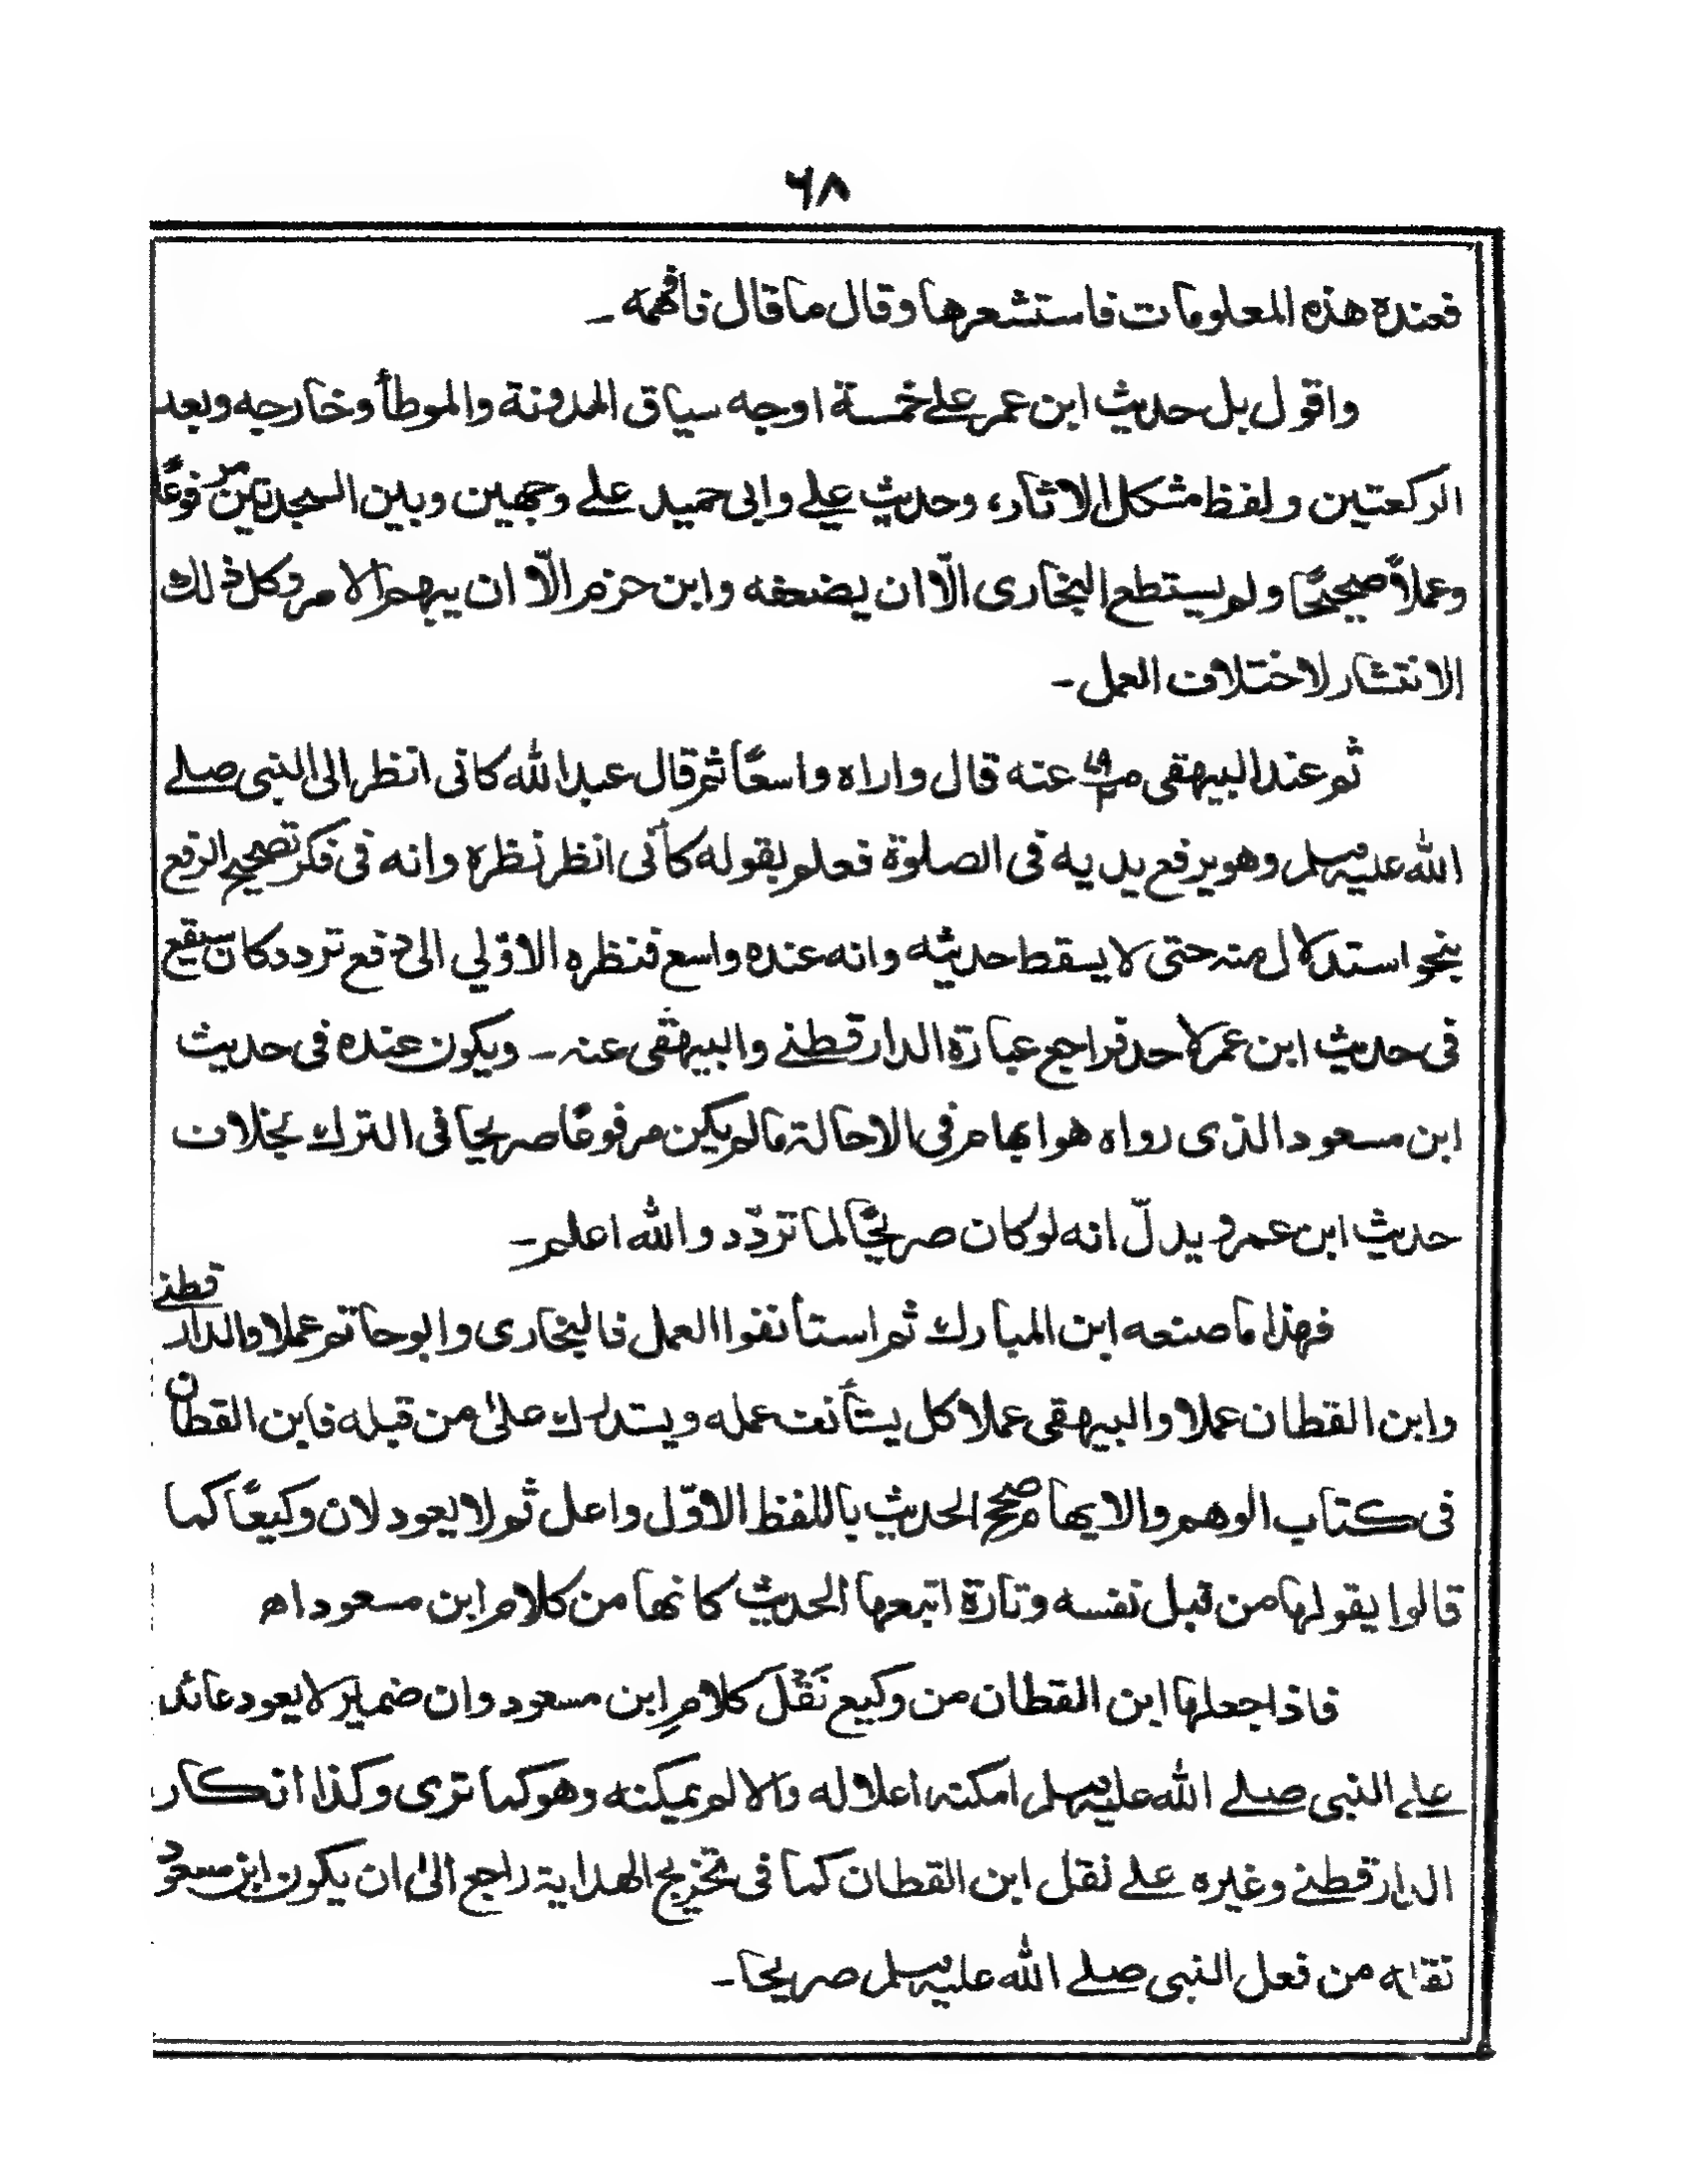 ٦٨
فعنده هذه المعلومات فاستشعرها وقال ما قال فأفهمه ـ
واقول بل حديث ابن عمر علے خمسة اوجه سياق المدونة والموطأ وخارجه وبعد
الركعتين ولفظ مشكل الاثار، وحديث علے وابى حميد علے وجهين وبين السجدتين مرفوعًا
وعملاً صحيحًا ولم يستطع البخارى الّا ان يضعفه وابن حزم الّا ان يبهم الامر وكل ذلك
الانتشار لاختلاف العمل ـ
ثم عند البيهقى عنه قال واراه واسعًا ثم قال عبد الله كانى انظر الى النبى صلے
الله عليه وسلم وهو يرفع يديه فى الصلوة فعلم بقوله كأنى انظر نظره وانه فى فكر تصحيح الرفع
بنحو استدلال منه حتى لا يسقط حديثه وانه عنده واسع فنظره الاوّلي الى دفع تردد كان سيقع
فى حديث ابن عمر لاحد فراجع عبارة الدارقطنے والبيهقى عنه ـ ويكون عنده فى حديث
ابن مسعود الذى رواه هو ابهام فى الاحالة مالم يكن مرفوعًا صريحا فى الترك بخلاف
حديث ابن عمر و يدلّ انه لو كان صريحًا لما تردّد والله اعلم ـ
فهذا ما صنعه ابن المبارك ثم استأنفوا العمل فالبخارى وابو حاتم عملا والدارقطنے
وابن القطان عملا والبيهقى عملا كل يستأنف عمله ويستدرك علىٰ من قبله فابن القطان
فى كتاب الوهم والايهام صحح الحديث باللفظ الاوّل واعل ثم لا يعود لان وكيعًا كما
قالوا يقولها من قبل نفسه وتارة اتبعها الحديث كانها من كلام ابن مسعود اھ
فاذا جعلها ابن القطان من وكيع نَقْلَ كلامِ ابن مسعود وان ضمير لا يعود عائد
علے النبى صلے الله عليه وسلم امكنه اعلاله والا لم يمكنه وهو كما ترى وكذا انكار
الدارقطنے وغيره علے نقل ابن القطان كما فى تخريج الهداية راجع الىٰ ان يكون ابن مسعود
نقله من فعل النبى صلے الله عليه وسلم صريحا ـ